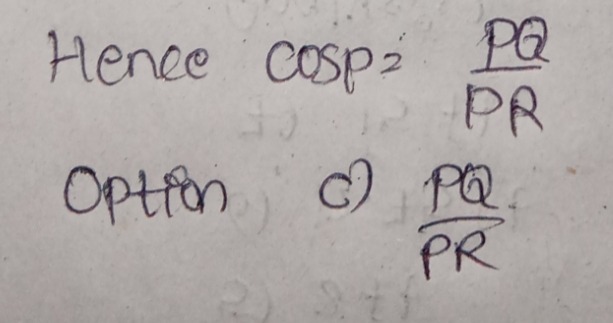 Hence cosp = PQ/PR
Option c) PQ/PR